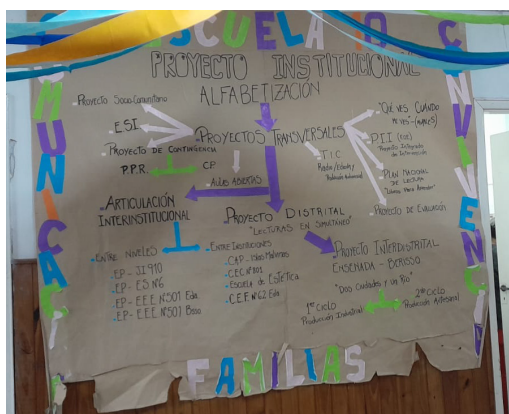 ESCUELA 10
COMUNICACI
CONVIVENCI
FAMILIAS
PROYECTO INSTITUCIONAL
ALFABETIZACIÓN
Proyecto Socio-Comunitario
ESI
PROYECTO DE CONTINGENCIA
P.P.R.
CP
PROYECTOS TRANSVERSALES
AULAS ABIERTAS
T.I.C
Radio/Edublog
"Qué ves cuando
me ves"-(ARTES)
P.I.I (EOE)
Proyecto Integrado
de Intervención
PLAN NACIONAL
DE LECTURA
PROYECTO DE EVALUACIÓN
ARTICULACIÓN
INTERINSTITUCIONAL
• ENTRE NIVELES
EP - JI 910
EP - ES Nº6
EP - E.E.E. Nº501 Eda
EP - E.E.E Nº501 Bsso
• ENTRE INSTITUCIONES
CAP - Islas Malvinas
C.E.C Nº801
Escuela de Estética
C.E.F. Nº62 Eda
PROYECTO DISTRITAL
"LECTURAS EN SIMULTÁNEO"
PROYECTO INTERDISTRITAL
ENSENADA - BERISSO
"Dos Ciudades y un Río"
1er CICLO
Producción Industrial
2do CICLO
Producción Artesanal